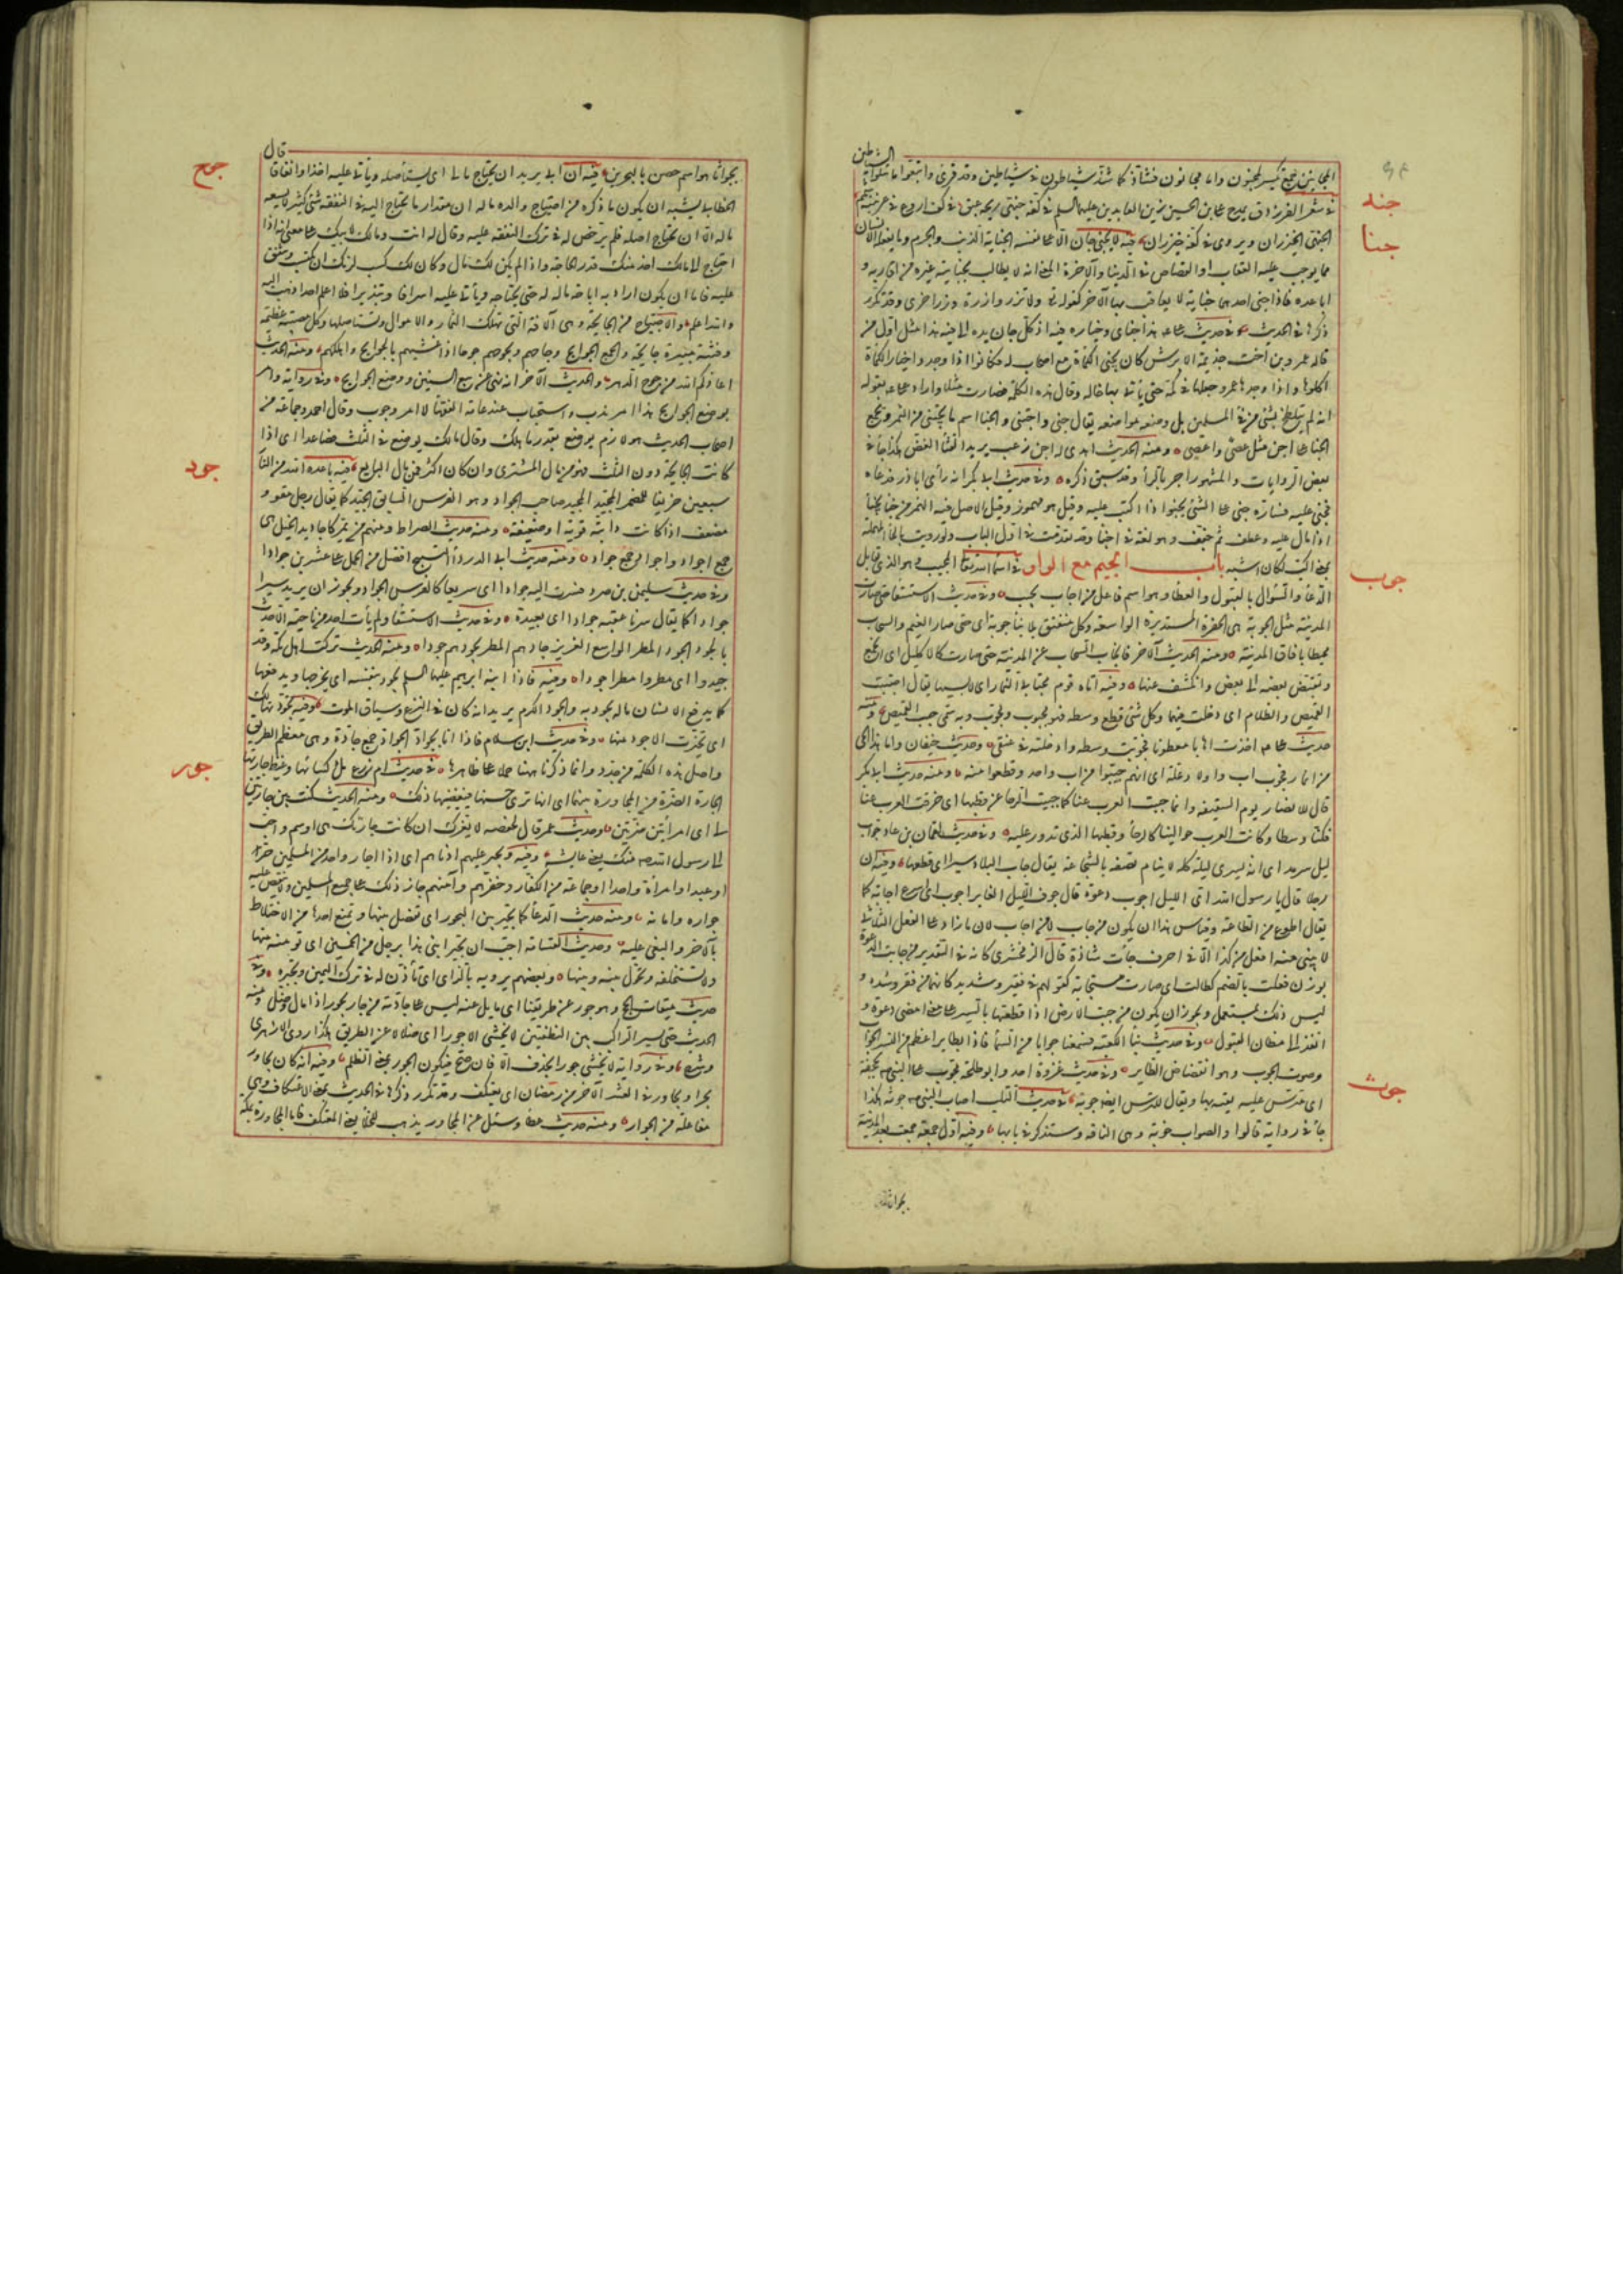 الشياطين
المجانين جمع تكسير لمجنون واما مجانون فشاذ كما شذ شياطون في شياطين وقد قرئ واتبعوا ما تتلوا
جنه
في شعر الفرزدق يمدح على بن الحسين زين العابدين عليهما السلم في كفه جنهى ريحه عبق في كف اروع في عرنينه شمم
جنا
الجنهى الخيزران ويروى في كفه خيزران فيه لا يجنى جان الا على نفسه الجناية الذنب والجرم وما يفعله الانسان
مما يوجب عليه العقاب او القصاص في الدنيا والآخرة المعنى انه لا يطالب بجناية غيره من اقاربه و
اباعده فاذا جنى احدهما جناية لا يعاقب بها الآخر كقوله تع ولا تزر وازرة وزر اخرى وقد تكرر
ذكرها في الحديث وفي حديث على هذا جناى وخياره فيه اذ كل جان يده الى فيه هذا مثل اول من
قاله عمرو بن اخت جذيمة الابرش كان يجنى الكمأة مع اصحاب له فكانوا اذا وجدوا خيار الكمأة
اكلوها واذا وجدها عمرو جعلها في كمه حتى يأتى بها خاله وقال هذه الكلمة فصارت مثلا واراد على بقوله
انه لم يتلطخ بشئ من فئ المسلمين بل وضعه مواضعه يقال جنى واجتنى والجنا اسم ما يجتنى من الثمر ويجمع
الجنا على اجن مثل عصى واعصى ومنه الحديث اهدى له اجن زغب يريد القثاء الغض هكذا جاء في
بعض الروايات والمشهور اجر بالراء وقد سبق ذكره وفي حديث ابى بكر انه رأى ابا ذر فدعاه
فجنى عليه فسارّه جنى على الشئ يجنو اذا اكب عليه وقيل هو مهموز وقيل الاصل فيه الهمز من جنأ يجنأ
اذا مال عليه وعطف ثم خفف وهو لغة في اجنأ وقد تقدمت في اول الباب ولو رويت بالحاء المهملة
بمعنى اكب لكان اشبه باب الجيم مع الواو في اسماء الله تعالى المجيب هو الذى يقابل
جوب
الدعاء والسؤال بالقبول والعطاء وهو اسم فاعل من اجاب يجيب وفي حديث الاستسقاء حتى صارت
المدينة مثل الجوبة هى الحفرة المستديرة الواسعة وكل منفتق بلا بناء جوبة اى حتى صار الغيم والسحاب
محيطا بافاق المدينة ومنه الحديث الآخر فانجاب السحاب عن المدينة حتى صارت كالاكليل اى انجمع
وتقبض بعضه الى بعض وانكشف عنها وفيه اتاه قوم مجتابى النمار اى لابسيها يقال اجتبت
القميص والظلام اى دخلت فيهما وكل شئ قطع وسطه فهو مجبوب ومجوب وبه سمى جيب القميص ومنه
حديث على اخذت اهابا معطونا فجوبت وسطه وادخلته في عنقى وحديث خيفان واما هذا الحى
من انمار فجوب اب واولاد علة اى انهم جيبوا من اب واحد وقطعوا منه ومنه حديث ابى بكر
قال للانصار يوم السقيفة وانما جيبت العرب عنا كما جيبت الرحا عن قطبها اى خرقت العرب عنا
فكنا وسطا وكانت العرب حوالينا كالرحا وقطبها الذى تدور عليه وفي حديث لقمان بن عاد جواب
ليل سرمد اى انه يسرى ليلته كله لا ينام نصفه بالشجاعة يقال جاب البلاد سيرا اى قطعها وفيه ان
رجلا قال يا رسول الله اى الليل اجوب دعوة قال جوف الليل الغابر اجوب اى اسرع اجابة كما
يقال اطوع من الطاعة وقياس هذا ان يكون من جاب لا من اجاب لان ما زاد على الفعل الثلاثى
لا يبنى منه افعل من كذا الا في احرف جاءت شاذة قال الزمخشرى كانه في التقدير من جابت الدعوة
بوزن فعلت بالضم كطالت اى صارت مستجابة كقولهم في فقير وشديد كانهما من فقر وشدد و
ليس ذلك بمستعمل ويجوز ان يكون من جبت الارض اذا قطعتها بالسير على معنى امضى دعوة و
انفذ الى مظان القبول وفي حديث بناء الكعبة فسمعنا جوابا من السماء فاذا بطاير اعظم من النسر الجواب
وصوت الجوب وهو انقضاض الطاير وفي حديث غزوة احد وابو طلحة مجوب على النبى صم بحجفة
جوث
اى مترس عليه يقيه بها ويقال للترس ايضا جوبة في حديث التلب اصاب النبى صم جوثة هكذا
جاء في رواية قالوا والصواب خوبة وهى الفاقة وستذكر في بابها وفيه اول جمعة جمعت بعد المدينة
بجواثا
قال
جوح
بجواثا هو اسم حصن بالبحرين فيه ان ابى يريد ان يجتاح مالى اى يستأصله ويأتى عليه اخذا وانفاقا
الخطابى يشبه ان يكون ما ذكره من اجتياح والده ماله ان مقدار ما يحتاج اليه في النفقة شئ كثير لا يسعه
ماله الا ان يجتاح اصله فلم يرخص له في ترك النفقة عليه وقال له انت ومالك لابيك على معنى انه اذا
احتاج الى مالك اخذ منك قدر الحاجة واذا لم يكن لك مال وكان لك كسب لزمك ان تكتسب وتنفق
عليه فاما ان يكون اراد به اباحة ماله له حتى يجتاحه ويأتى عليه اسرافا وتبذيرا فلا اعلم احدا ذهب اليه
والله اعلم والاجتياح من الجايحة وهى الآفة التى تهلك الثمار والاموال وتستأصلها وكل مصيبة عظيمة
وفتنة مبيرة جايحة والجمع الجوايح وجاحهم يجوحهم جوحا اذا غشيهم بالجوايح واهلكهم ومنه الحديث
اعاذكم الله من جوح الدهر والحديث الآخر انه نهى عن بيع السنين ووضع الجوايح وفي رواية وامر
بوضع الجوايح هذا امر ندب واستحباب عند عامة الفقهاء لا امر وجوب وقال احمد وجماعة من
اصحاب الحديث هو لازم يوضع بقدر ما هلك وقال مالك يوضع في الثلث فصاعدا اى اذا
جود
كانت الجايحة دون الثلث فهو من مال المشترى وان كان اكثر فمن مال البايع فيه باعده الله من النار
سبعين خريفا للمضمر المجيد المجيد صاحب الجواد وهو الفرس السابق الجيد كما يقال رجل مقو و
مضعف اذا كانت دابته قوية او ضعيفة ومنه حديث الصراط ومنهم من يمر كاجاويد الخيل هى
جمع اجواد واجواد جمع جواد ومنه حديث ابى الدرداء التسبيح افضل من الحمل على عشرين جوادا
وفي حديث سليمن بن صرد فسرت اليه جوادا اى سريعا كالفرس الجواد ويجوز ان يريد سيرا
جوادا كما يقال سرنا عقبة جوادا اى بعيدة وفي حديث الاستسقاء ولم يأت احد من ناحية الا حدث
بالجود الجود المطر الواسع الغزير جادهم المطر يجودهم جودا ومنه الحديث تركت اهل مكة وقد
جيدوا اى مطروا مطرا جودا وفيه فاذا ابنه ابرهيم عليه السلم يجود بنفسه اى يخرجها ويدفعها
كما يدفع الانسان ماله يجود به والجود الكرم يريد انه كان في النزع وسياق الموت وفيه تجودتها لك
اى تخيرت الاجود منها وفي حديث ابن سلام فاذا انا بجواد الجواد جمع جادة وهى معظم الطريق
جور
واصل هذه الكلمة من جدد وانما ذكرنا ههنا حملا على ظاهرها في حديث ام زرع ملء كسائها وغيظ جارتها
الجارة الضرة من المجاورة بينهما اى انها ترى حسنها فيغيظها ذلك ومنه الحديث كنت بين جارتين
لى اى امرأتين ضرتين وحديث عمر قال لحفصة لا يغرك ان كانت جارتك هى اوسم واحب
الى رسول الله صم منك يعنى عايشة وفيه ويجير عليهم ادناهم اى اذا اجار واحد من المسلمين حر
او عبد او امرأة واحدا او جماعة من الكفار وخفرهم وآمنهم جاز ذلك على جميع المسلمين ولا ينقض عليه
جواره وامانه ومنه حديث الدعاء كما يجير بين البحور اى تفصل بينها وتمنع احدها من الاختلاط
بالآخر والبغى عليه وحديث القسامة احب ان تجير ابنى هذا برجل من الخمسين اى تؤمنه منها
ولا تستحلفه وتحول بينه وبينها وبعضهم يرويه بالزاى اى تأذن له في ترك اليمين وتجيزه وفي
حديث ميقات الحج وهو جور عن طريقنا اى مايل عنه ليس على جادته من جار يجور اذا مال وضل ومنه
الحديث حتى يسير الراكب بين النطفتين لا يخشى الا جورا اى ضلالا عن الطريق هكذا روى الازهرى
وشرح وفي رواية لا يخشى جورا بحذف الا فان صح فيكون الجور بمعنى الظلم وفيه انه كان يجاور
بحراء ويجاور في العشر الآخر من رمضان اى يعتكف وقد تكرر ذكرها في الحديث بمعنى الاعتكاف وهى
مفاعلة من الجوار ومنه حديث عطاء وسئل عن المجاور يذهب للخلاء يعنى المعتكف فاما المجاورة بمكة